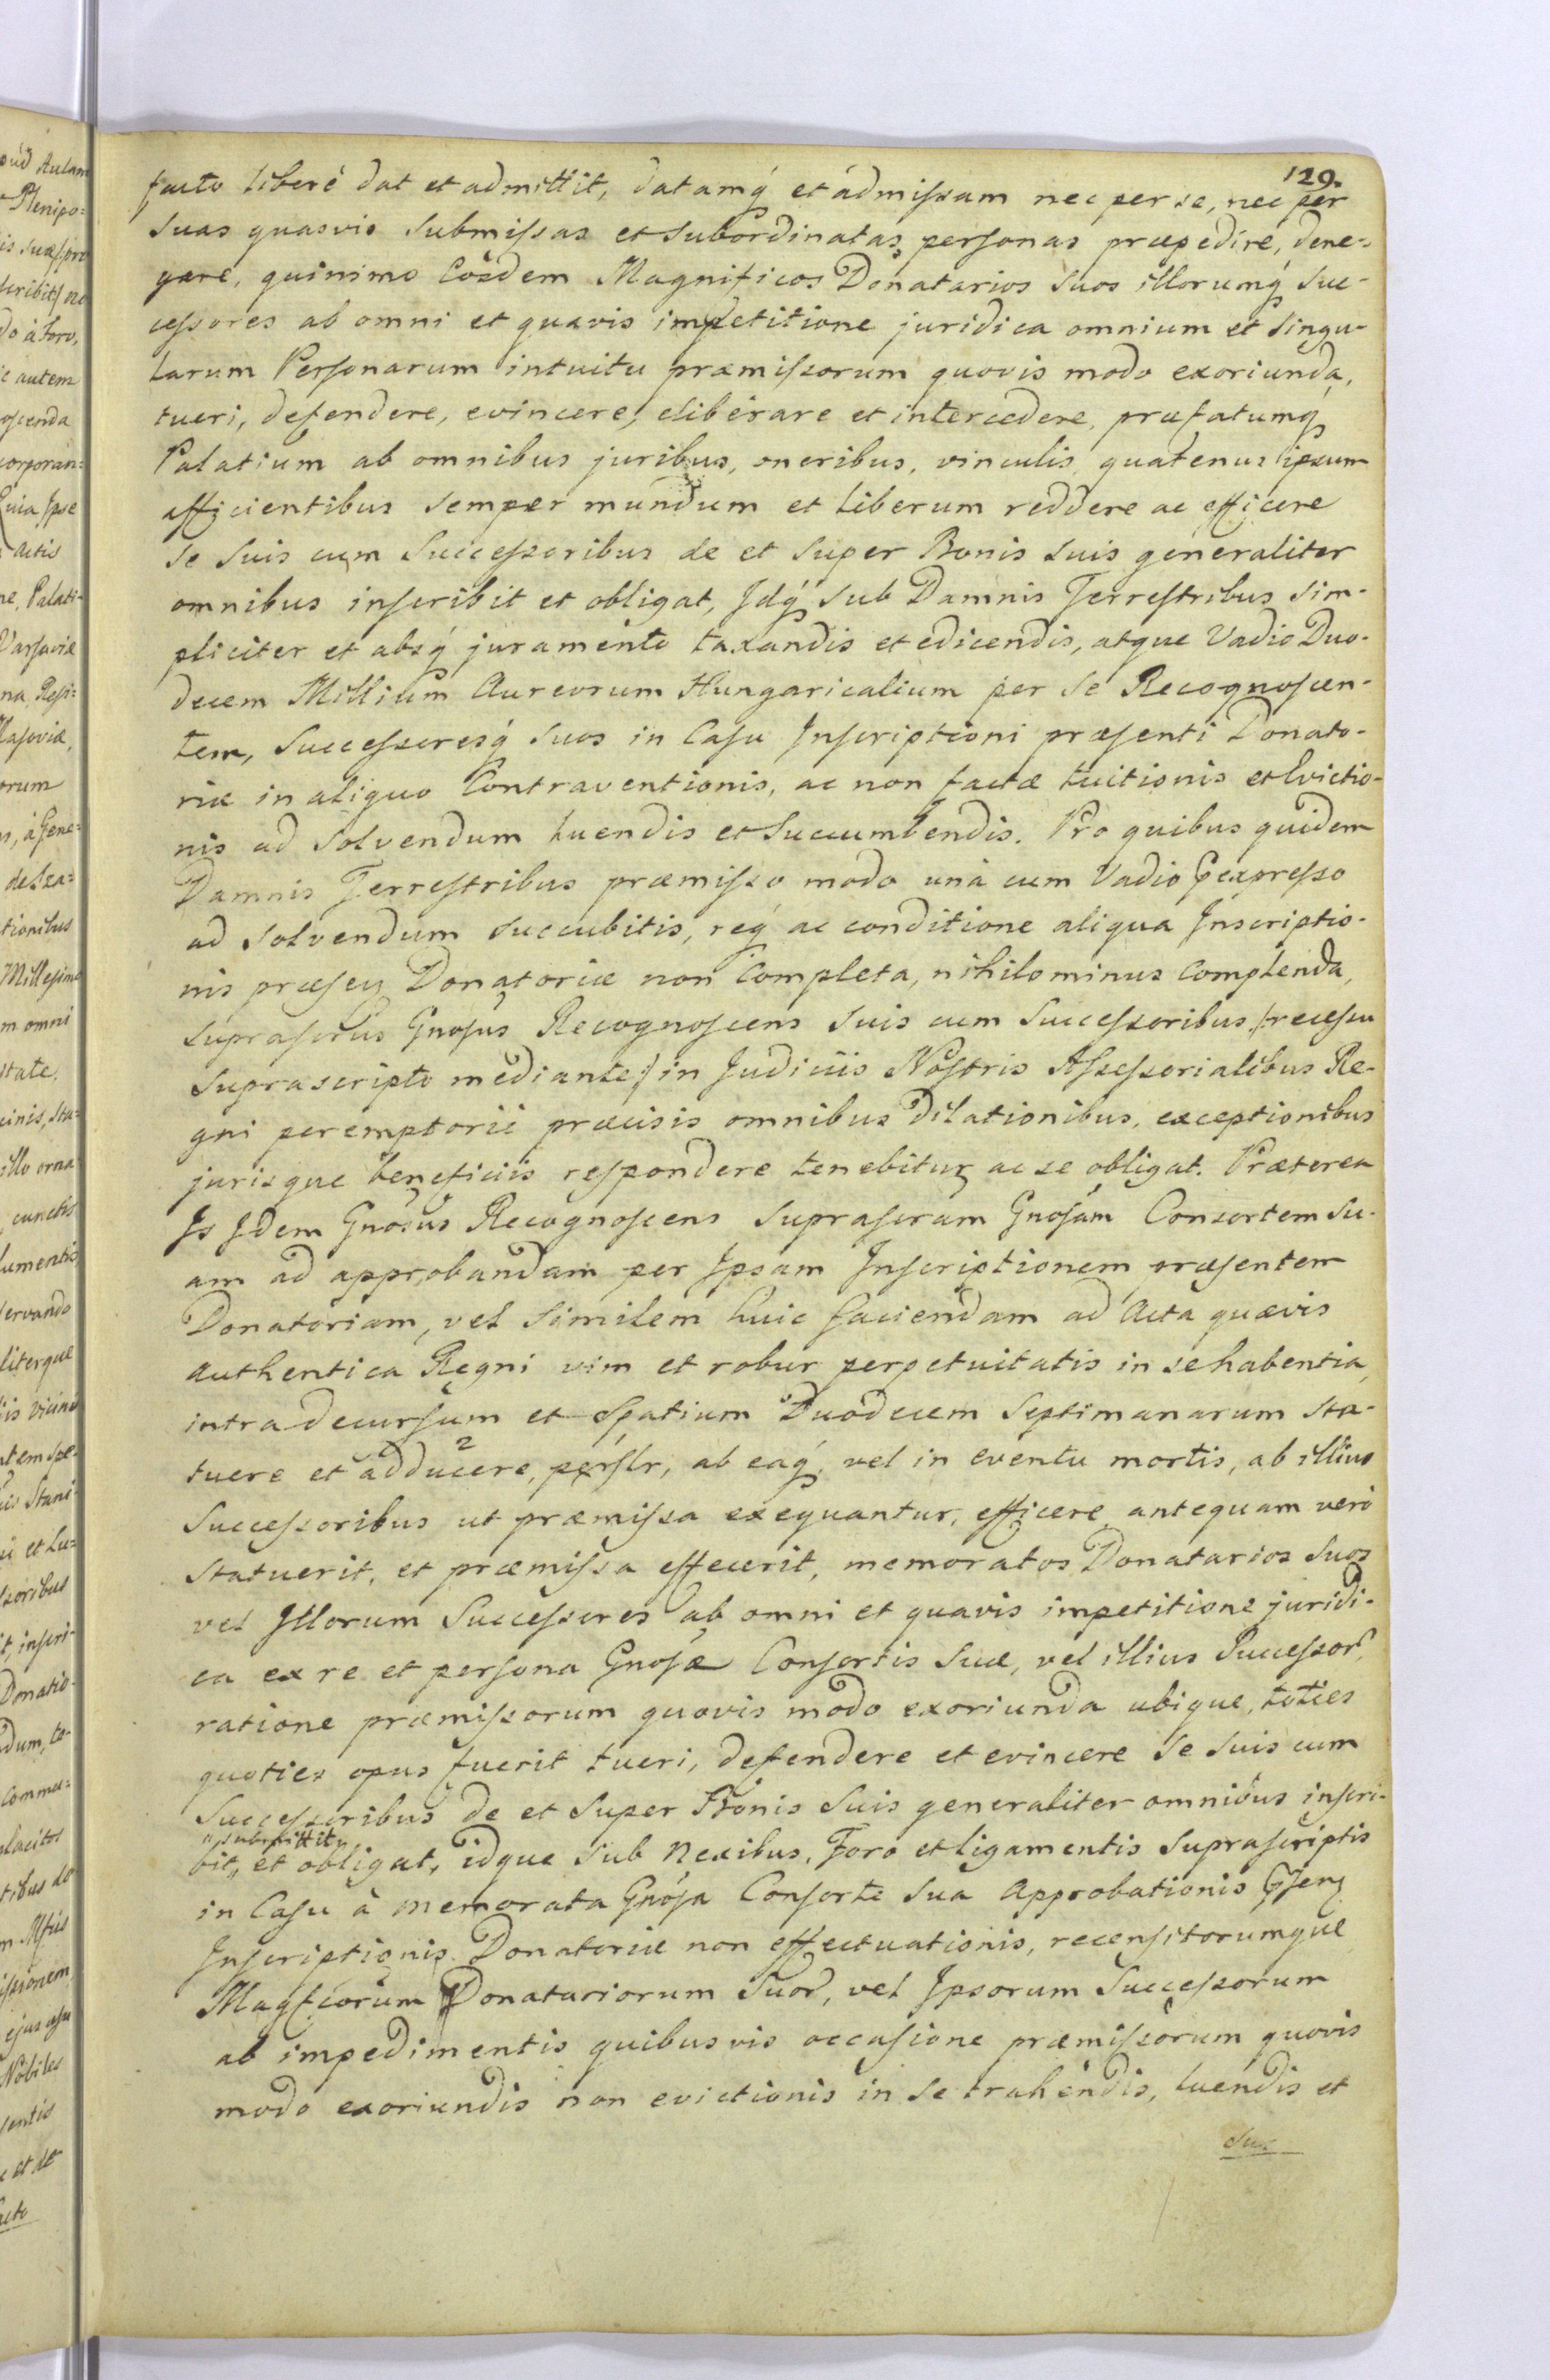 129.
facto liberè dat et admittit, datamq́ et admiſsam nec per se, nec per
suas quasvis submiſsas et subordinatas perſonas præpedire, dene-
gare, quinimo Eosdem Magnificos Donatarios suos illorumq́ suc-
ceſsores ab omni et quavis impetitione juridica omnium et singu-
larum Perſonarum intuitu præmiſsorum quovis modo exoriunda,
tueri, defendere, evincere, eliberare et intercedere, præfatumq́
Palatium ab omnibus juribus, oneribus, vinculis, quatenus ipsum
afficientibus semper mundum et liberum reddere ac efficere
se suis cum succeſsoribus de et super Bonis suis generaliter
omnibus inſcribit et obligat, Idq́ sub Damnis Terreſtribus sim-
pliciter et absq́ juramento taxandis et edicendis, atque Vadio Duo-
decem Millium Aureorum Hungaricalium per se Recognoſcen-
tem, succeſsoresq́ suos in Caſu Inſcriptioni præſenti Donato-
riæ in aliquo Contraventionis, ac non factæ tuitionis et Evictio-
nis ad solvendum luendis et succumbendis. Pro quibus quidem
Damnis Terreſtribus præmiſso modo unà cum Vadio ꝑexpreſso
ad solvendum succubitis, req́ ac conditione aliqua Inscriptio-
nis præſen Donatoriæ non completa, nihilominus complenda,
supraſcrtus Gnoſus Recognoſcens suis cum succeſsoribus /:receſsu
suprascripto mediante:/ in Judiciis Noſtris Aſseſsorialibus Re-
gni peremptorii præcisis omnibus dilationibus, exceptionibus
jurisque beneficiis reſpondere tenebitur ac se obligat. Præterea
Is Idem Gnosus Recognoſcens supraſcram Gnoſam Consortem su-
am ad approbandam per Ipsam Inſcriptionem præſentem
Donatoriam, vel similem huic faciendam ad Acta quævis
authentica Regni vim et robur perpetuitatis in se habentia,
intra decurſum et spatium Duodecem septimanarum sta-
tuere et adducere, perſlr, ab eaq́, vel in eventu mortis, ab illius
succeſsoribus ut præmiſsa exequantur, efficere, antequam verò
statuerit, et præmiſsa effecerit, memoratos Donatarios suos
vel Illorum succeſsores ab omni et quavis impetitione juridi-
ca ex re et perſona Gnoſæ Conſortis suæ, vel illius succeſsor,
ratione præmiſsorum quovis modo exoriunda ubique, toties
quoties opus fuerit tueri, defendere et evincere se suis cum
succeſsoribus de et super Bonis suis generaliter omnibus inſcri-
submittit
bit, et obligat, idque sub nexibus, Foro et ligamentis supraſcriptis
in Caſu à memorata Gnosa Conſorte sua approbationis ꝑſen
Inſcriptionis Donatoriæ non effectuationis, recenſitorumque
Magfcorum Donatariorum suor, vel Ipsorum succeſsorum
ab impedimentis quibusvis occaſione præmiſsorum quovis
modo exoriundis non evictionis in se trahendis, luendis et
suc